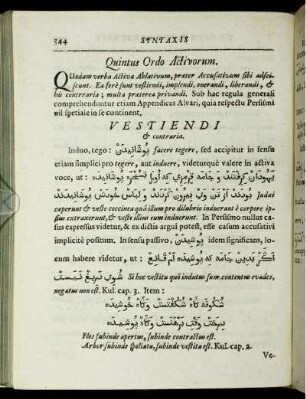 344 SYNTAXIS
Quintus Ordo Activorum.
QUædam verba Activa Ablativum, præter Accusativum sibi adsci-
scunt. Ea ferè sunt vestiendi, implendi, onerandi, liberandi, &
his contraria; multa præterea privandi. Sub hac regula generali
comprehenduntur etiam Appendices Alvari, quia respectu Persismi
nil speciale in se continent.
VESTIENDI
& contraria.
Induo, tego: پوشانیدن facere tegere, sed accipitur in sensu
etiam simplici pro tegere, aut induere, videturque valere in activa
voce, ut:
Judæi
ceperunt & veste coccinea quâ illum pro illusione induerant è corpore ip-
sius extraxerunt, & veste illius eum induerunt. In Persismo nullus ca-
sus expressus videtur, & ex dictis arguì potest, esse casum accusativi
implicitè positum. In sensu passivo, پوشیدن idem significans, lo-
cum habere videtur, ut:
Si hoc vestitu quô indutus sum contentus evades,
negatus non est. Kul. cap. 3. Item:
شکوفه گاه شکفتست وگاه خوشیده
درخت وقت برهنست وگاه پوشیده
Flos subinde apertus, subinde contractus est.
Arbor subinde spoliata, subinde vestita est. Kul. cap. 2.
Ve-